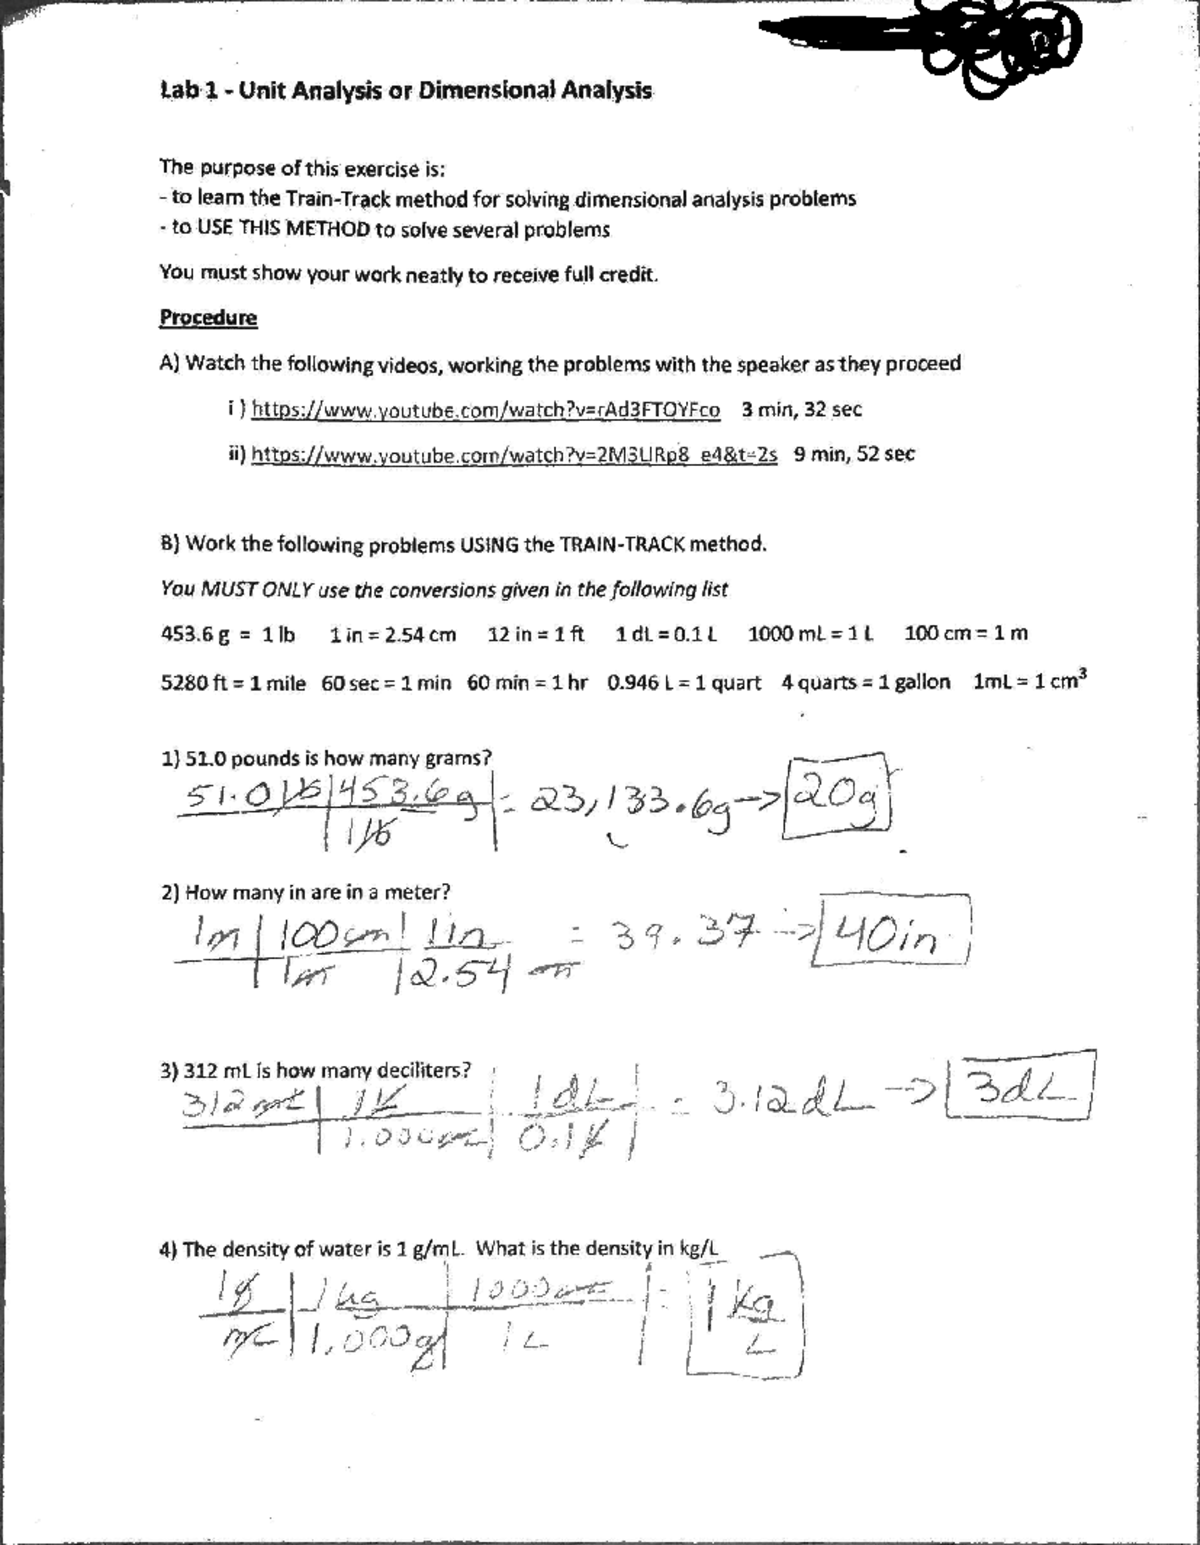 Lab 1 - Unit Analysis or Dimensional Analysis
The purpose of this exercise is:
- to learn the Train-Track method for solving dimensional analysis problems
- to USE THIS METHOD to solve several problems
You must show your work neatly to receive full credit.
Procedure
A) Watch the following videos, working the problems with the speaker as they proceed
i ) https://www.youtube.com/watch?v=rAd3FTOYFco 3 min, 32 sec
ii) https://www.youtube.com/watch?v=2M3LIRp8_e4&t=2s 9 min, 52 sec
B) Work the following problems USING the TRAIN-TRACK method.
You MUST ONLY use the conversions given in the following list
453.6 g = 1 lb 1 in = 2.54 cm 12 in = 1 ft 1 dL = 0.1 L 1000 mL = 1 L 100 cm = 1 m
5280 ft = 1 mile 60 sec = 1 min 60 min = 1 hr 0.946 L = 1 quart 4 quarts = 1 gallon 1mL = 1 cm³
1) 51.0 pounds is how many grams?
51.0 lb | 453.6g = 23,133.6g -> 20g
1 lb
2) How many in are in a meter?
1m | 100cm | 1in = 39.37 -> 40in
1m | 2.54 cm
3) 312 mL is how many deciliters?
312 mL | 1L | 1dL = 3.12dL -> 3dL
1,000mL | 0.1L
4) The density of water is 1 g/mL. What is the density in kg/L
1g | 1kg | 1000mL = 1 kg
mL | 1,000g | 1L L